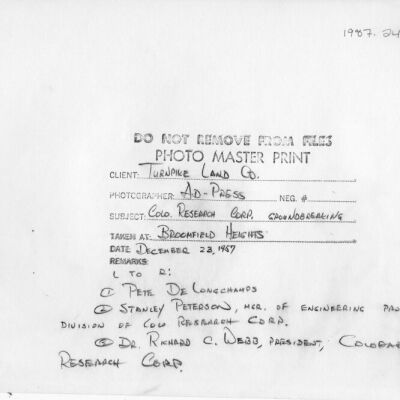 1987.24
DO NOT REMOVE FROM FILES
PHOTO MASTER PRINT
CLIENT: TURNPIKE LAND CO.
PHOTOGRAPHER: AD-PRESS NEG. #
SUBJECT: COLO. RESEARCH CORP. GROUNDBREAKING
TAKEN AT: BROOMFIELD HEIGHTS
DATE DECEMBER 23, 1957
REMARKS:
L TO R:
① PETE DE LONGCHAMPS
② STANLEY PETERSON, MGR. OF ENGINEERING
DIVISION OF COLO RESEARCH CORP.
③ DR. RICHARD C. WEBB, PRESIDENT, COLORA
RESEARCH CORP.